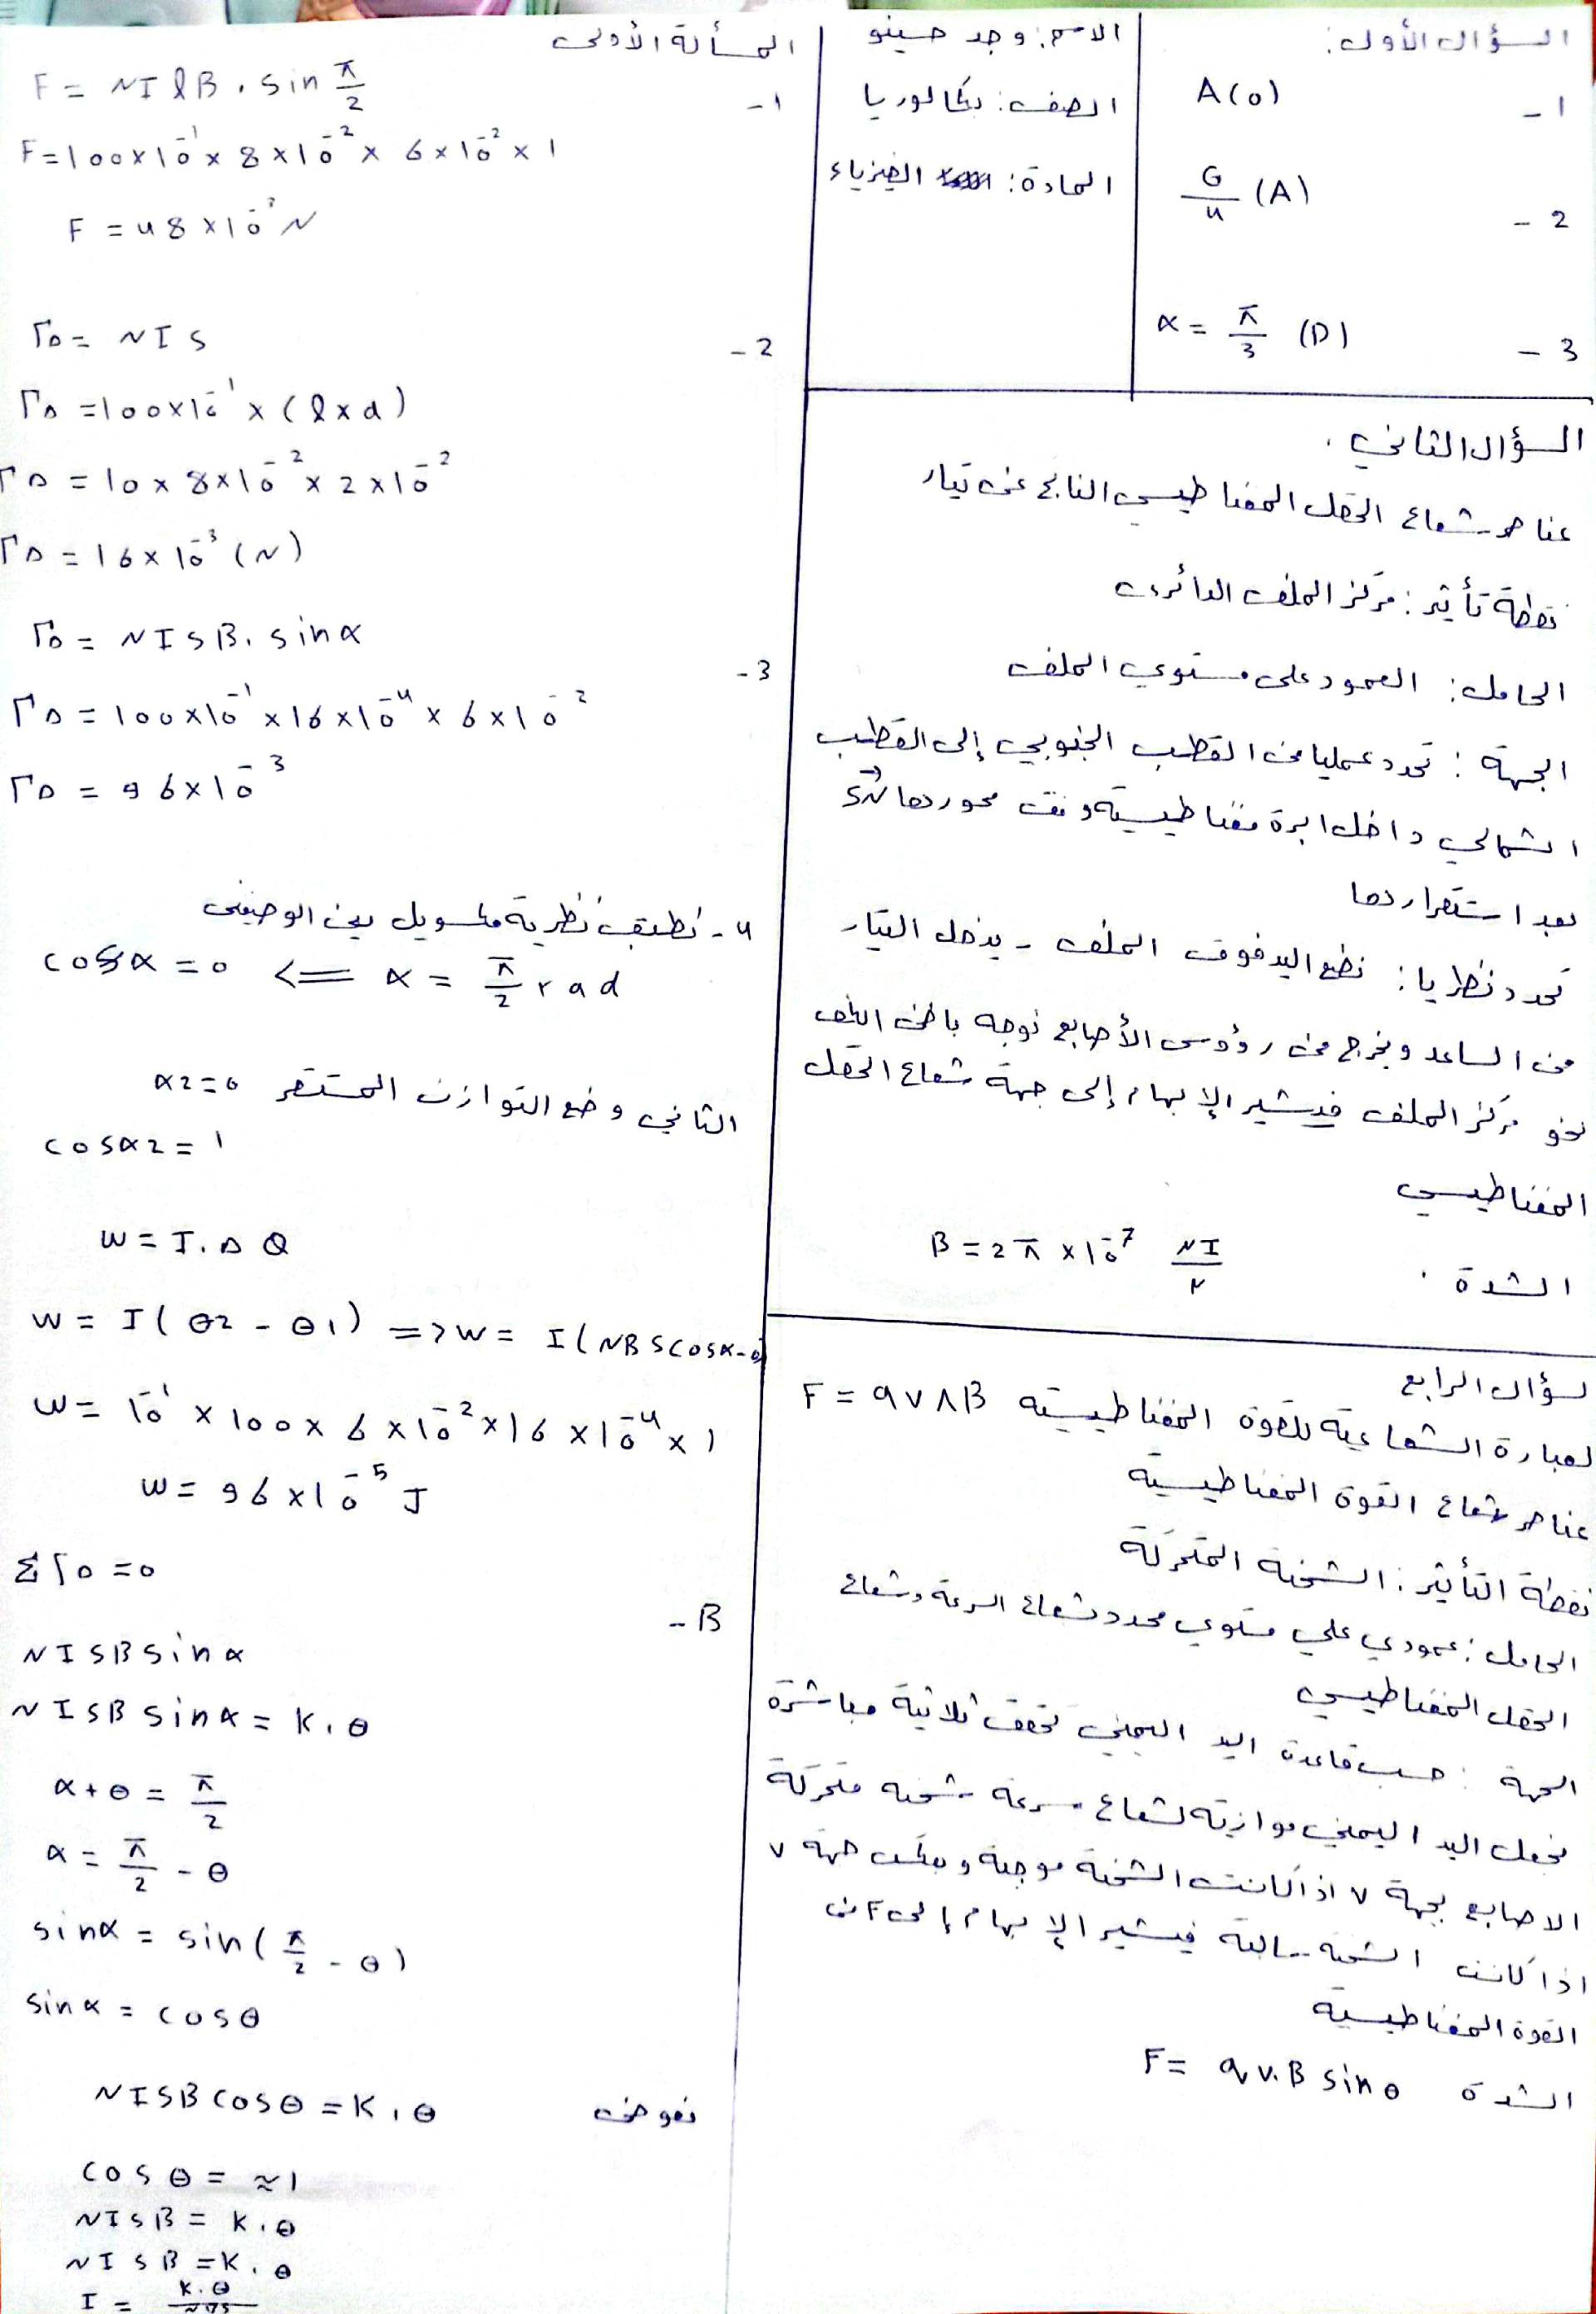 السؤال الأول:
1- A (0)
2- G/4 (A)
3- α = π/3 (D)
الاسم: وجد حسينو
الصف: بكالوريا
المادة: الفيزياء
السؤال الثاني.
عناصر شعاع الحقل المغناطيسي الناتج عن تيار
نقطة تأثير: مركز الملف الدائري
الحامل: العمود على مستوي الملف
الجهة: تحدد عمليا من القطب الجنوبي إلى القطب
الشمالي داخل ابرة مغناطيسية وفق محوردها SN
بعد استقراردها
تحدد نظريا: نضع اليد فوق الملف - يدخل التيار
من الساعد ويخرج من رؤوس الأصابع نوجه باطن الكف
نحو مركز الملف فيشير الإبهام إلى جهة شعاع الحقل
المغناطيسي
الشدة. B = 2π × 10⁻⁷ NI/r
لسؤال الرابع
لعبارة الشعاعية للقوة المغناطيسية F = qv∧B
عناصر شعاع القوة المغناطيسية
نقطة التأثير: الشحنة المتحركة
الحامل: عمودي على مستوي محدد شعاع السرعة وشعاع
الحقل المغناطيسي
الجهة: حسب قاعدة اليد اليمنى تحقق ثلاثية مباشرة
نجعل اليد اليمنى موازية لشعاع سرعة شحنة متحركة
الاصابع بجهة v اذا كانت الشحنة موجبة وبعكس جهة v
اذا كانت الشحنة سالبة فيشير الإبهام إلى F
القوة المغناطيسية
الشدة F = q v. B sin θ
المسألة الأولى
1- F = NIℓB . sin π/2
F = 100×10⁻¹ × 8×10⁻² × 6×10⁻² × 1
F = 48×10⁻³ N
2- ΓΔ = NIS
ΓΔ = 100×10⁻¹ × (ℓ×d)
ΓΔ = 10 × 8×10⁻² × 2×10⁻²
ΓΔ = 16×10⁻³ (N)
ΓΔ = NISB. sin α
3- ΓΔ = 100×10⁻¹ × 16×10⁻⁴ × 6×10⁻²
ΓΔ = 96×10⁻³
4- نطبق نظرية مكسويل بين الوضيعين
cos α = 0 <= α = π/2 rad
الثاني وضع التوازن المستقر α2 = 0
cos α2 = 1
W = I. Δ Q
W = I (θ2 - θ1) => W = I (NBS cos α - 0)
W = 10⁻¹ × 100 × 6×10⁻² × 16×10⁻⁴ × 1
W = 96×10⁻⁵ J
Σ ΓΔ = 0
B-
NISB sin α
NISB sin α = K . θ
α + θ = π/2
α = π/2 - θ
sin α = sin (π/2 - θ)
sin α = cos θ
نعوض NISB cos θ = K . θ
cos θ = ≈ 1
NISB = K . θ
NISB = K . θ
I = K . θ